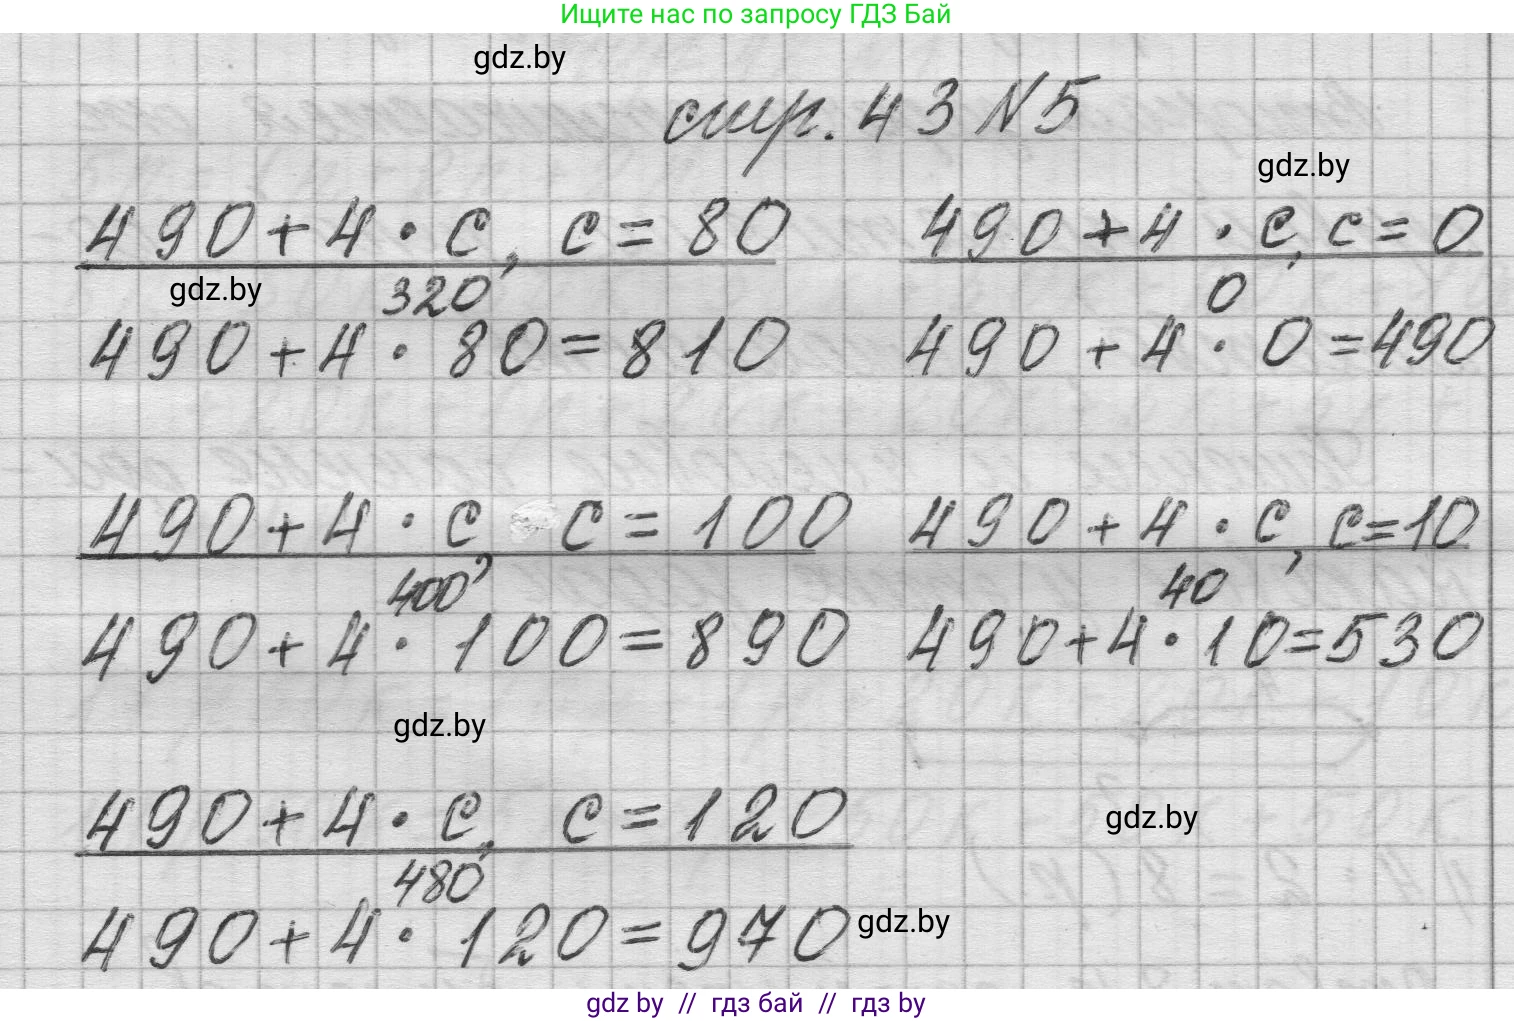 Ищите нас по запросу ГДЗ Бай
gdz.by
стр. 43 №5
gdz.by
490+4·c, c=80
490+4·c, c=0
gdz.by
320
0
490+4·80=810
490+4·0=490
490+4·c, c=100
490+4·c, c=10
400
40
490+4·100=890
490+4·10=530
gdz.by
490+4·c, c=120
gdz.by
480
490+4·120=970
gdz.by
gdz by // гдз бай // гдз by